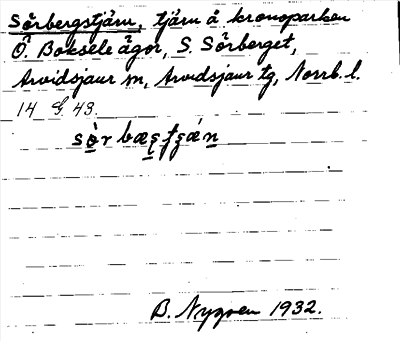 Sörbergstjärn, tjärn å kronoparken
Ö. Boksele ägor, S. Sörberget,
Arvidsjaur sn, Arvidsjaur tg, Norrb. l.
14 G 43.
sòr bæstjǽn
B. Nygren 1932.